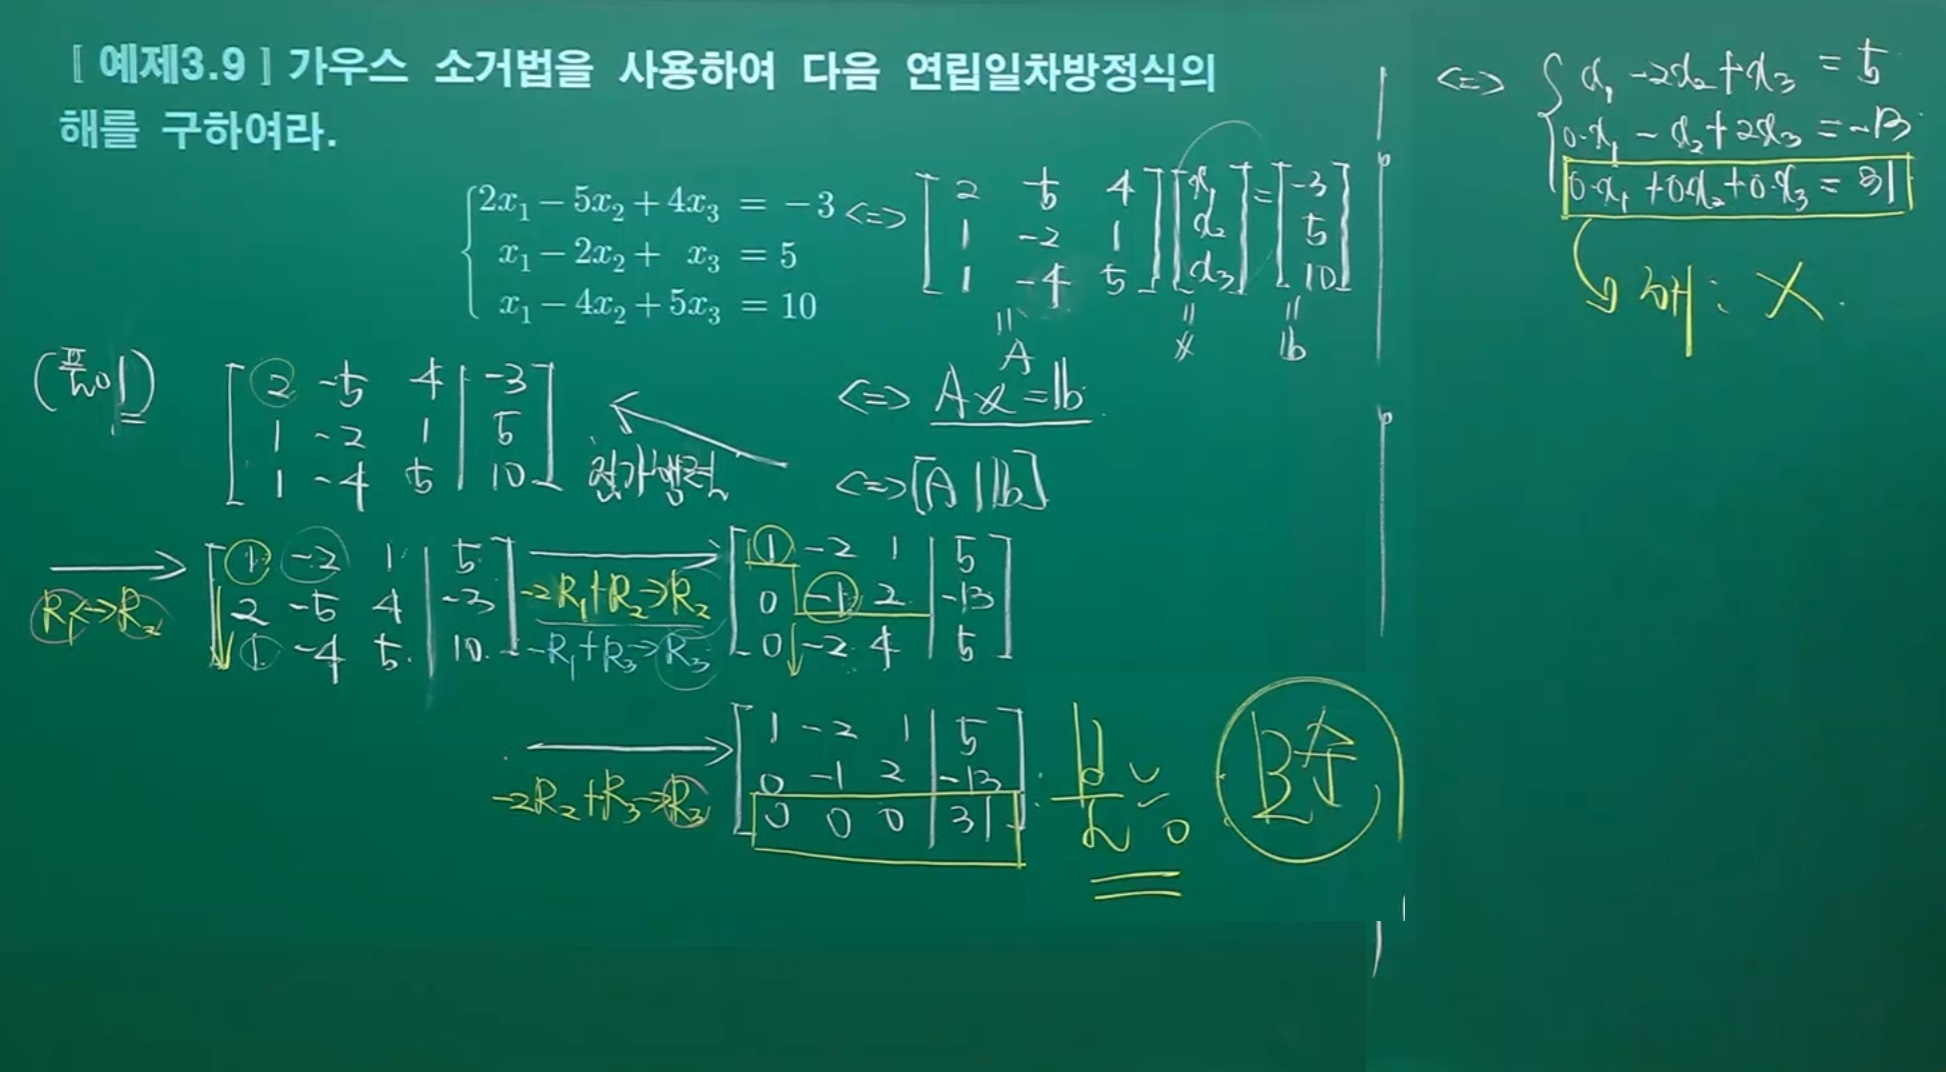 [ 예제3.9 ] 가우스 소거법을 사용하여 다음 연립일차방정식의
해를 구하여라.
2x₁ − 5x₂ + 4x₃ = −3
x₁ − 2x₂ + x₃ = 5
x₁ − 4x₂ + 5x₃ = 10
<=> [2 5 4] [x₁] = [-3]
[1 -2 1] [x₂] [5]
[1 -4 5] [x₃] [10]
= A = x = b
<=> Ax = b
<=> [A | b]
(풀이)
[2 -5 4 | -3]
[1 -2 1 | 5]
[1 -4 5 | 10]
첨가행렬
R₁<->R₂
[1 -2 1 | 5]
[2 -5 4 | -3]
[1 -4 5 | 10]
-2R₁+R₂→R₂
-R₁+R₃→R₃
[1 -2 1 | 5]
[0 -1 2 | -13]
[0 -2 4 | 5]
-2R₂+R₃→R₃
[1 -2 1 | 5]
[0 -1 2 | -13]
[0 0 0 | 31]
<=> x₁ -2x₂+x₃ = 5
0·x₁ - x₂+2x₃ = -13
0·x₁ +0x₂+0·x₃ = 31
해: X